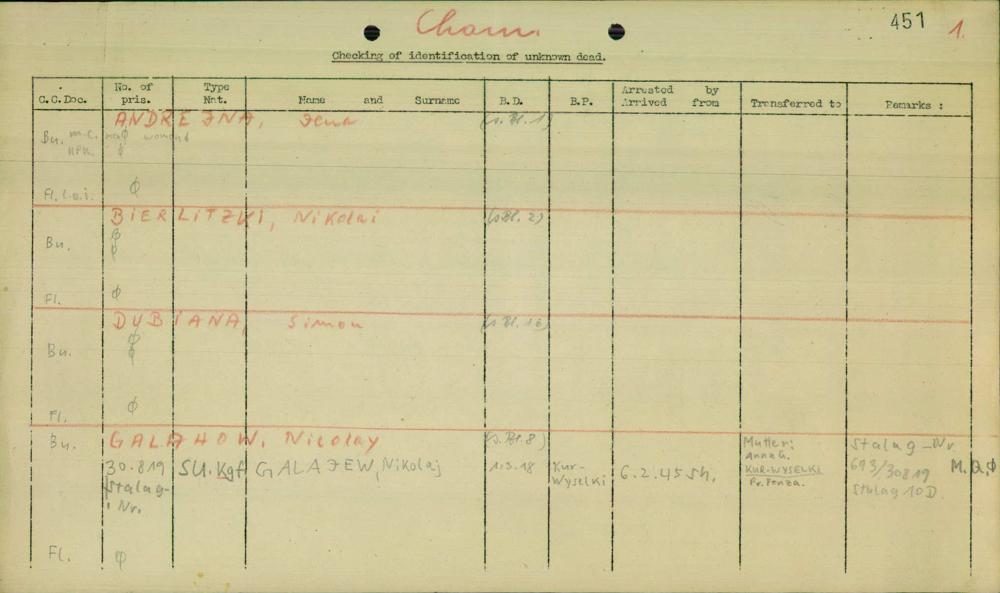 Cham.
451 1.
Checking of identification of unknown dead.
C.C.Doc. No. of pris. Type Nat. Name and Surname B.D. B.P. Arrested by Arrived from Transferred to Remarks :
ANDREJNA, Jena (s. Bl. 1)
Bu. m.c. ∅
HPK. ∅
Fl. l.o.i. ∅
BIERLITZKI, Nikolai (s. Bl. 2)
Bu. ∅
∅
Fl. ∅
DUBIANA, Simon (s. Bl. 16)
Bu. ∅
∅
Fl. ∅
Bu. GALAHOW, Nicolay (s. Bl. 8)
30.819 Stalag-Nr. SU. Kgf GALAJEW, Nikolaj 1.3.18 Kur-Wyselki 6.2.45 Sh. Mutter: Anna G. KUR-WYSELKI Pr. Penza. Stalag-Nr. 693/30819 Stalag 10D. M.Q.∅
Fl. ∅